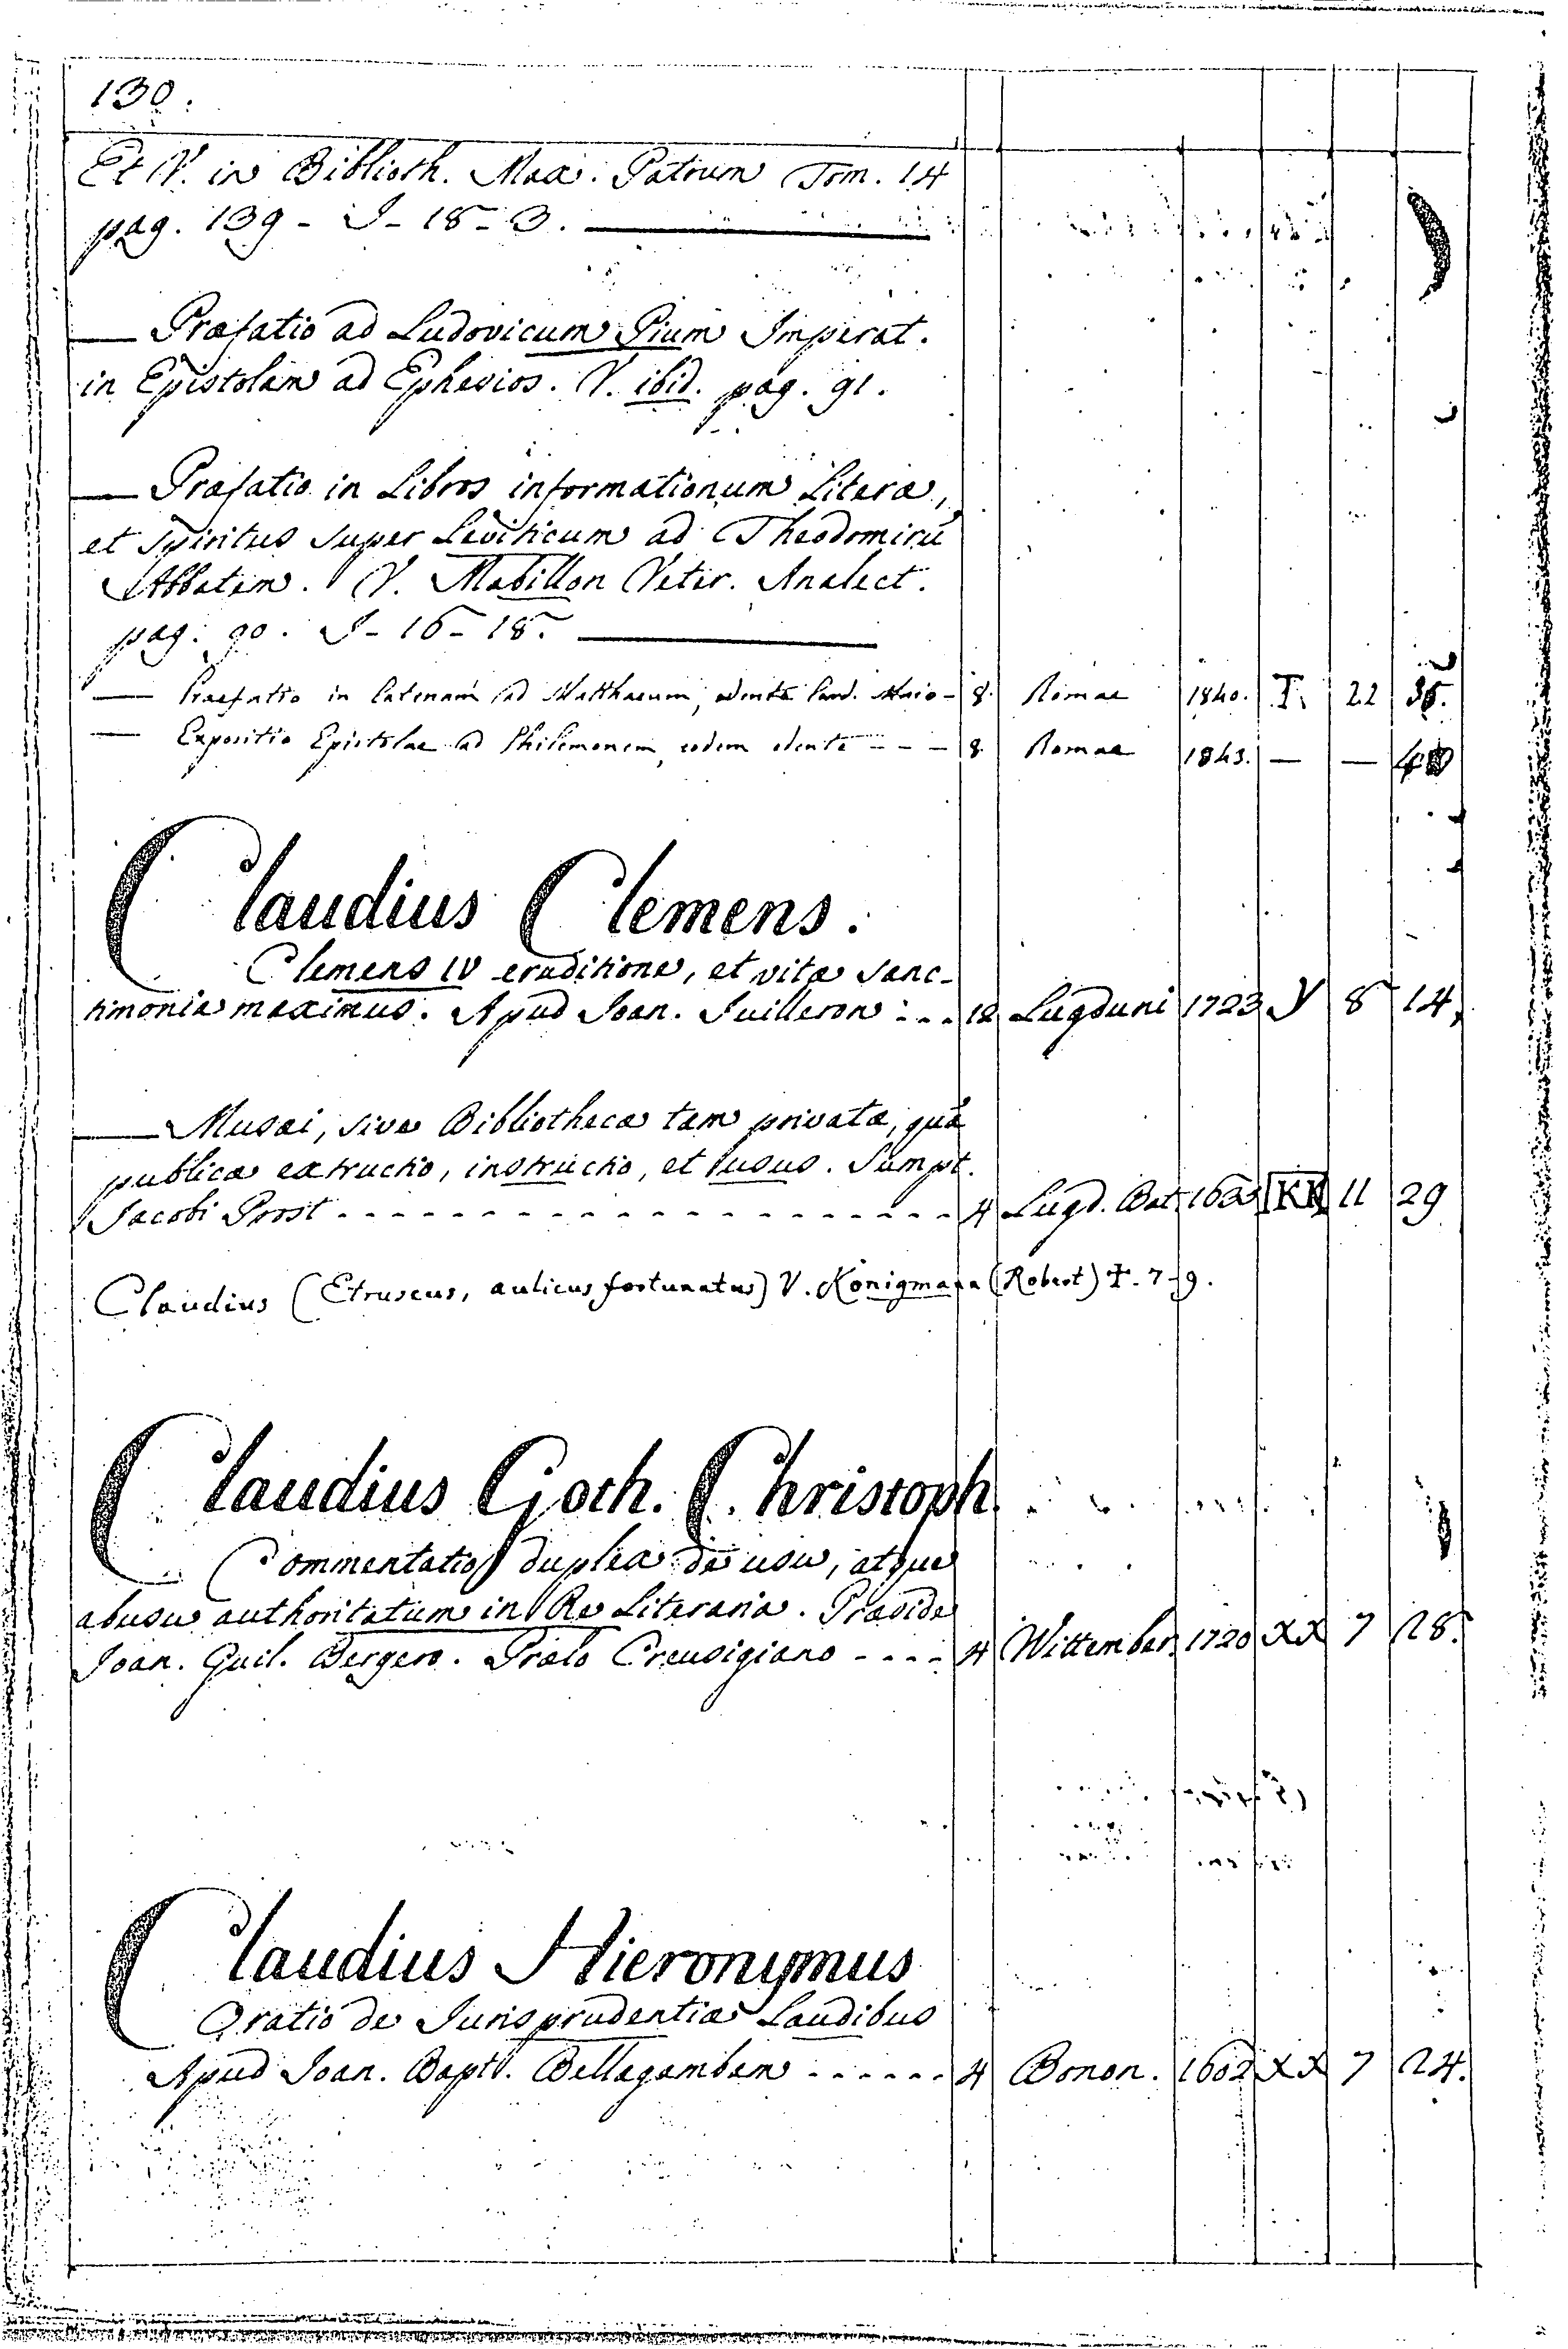 130.
Et V. in Biblioth. Max. Patrum Tom. 14
pag. 139 - I - 18 - 3.
— Præfatio ad Ludovicum Pium Imperat.
in Epistolam ad Ephesios. V. ibid. pag. 91.
— Præfatio in Libros informationum Literæ,
et Spiritus super Leviticum ad Theodomirū
Abbatem. V. Mabillon Veter. Analect.
pag. 90. I - 16 - 18.
— Praefatio in Catenam ad Matthaeum, edente Card. Maio - 8. Romae 1840. T. 22
— Expositio Epistolae ad Philemonem, eodem edente - - - 8. Romae 1843. — —
Claudius Clemens.
Clemens IV eruditione, et vitæ sanc-
timonia maximus. Apud Joan. Juilleron - - - 12 Lugduni 1723 Y 8 14
— Musæi, sive Bibliothecæ tam privatæ, quā
publicæ extructio, instructio, et usus. Sumpt.
Jacobi Prost - - - - - - - - - - - - - - - - - - 4 Lugd. Bat. KK 11 29
Claudius (Etruscus, aulicus fortunatus) V. Königmann (Robert) T. 7-9.
Claudius Goth. Christoph.
Commentatio duplex de usu, atque
abusu authoritatum in Re Literaria. Præside
Joan. Guil. Bergero. Prælo Creusigiano - - - - 4 Wittember. 1720 XX 7 28.
Claudius Hieronymus
Oratio de Jurisprudentiæ Laudibus
Apud Joan. Bapt. Bellagambam - - - - - - 4 Bonon. 1602 XX 7 24.